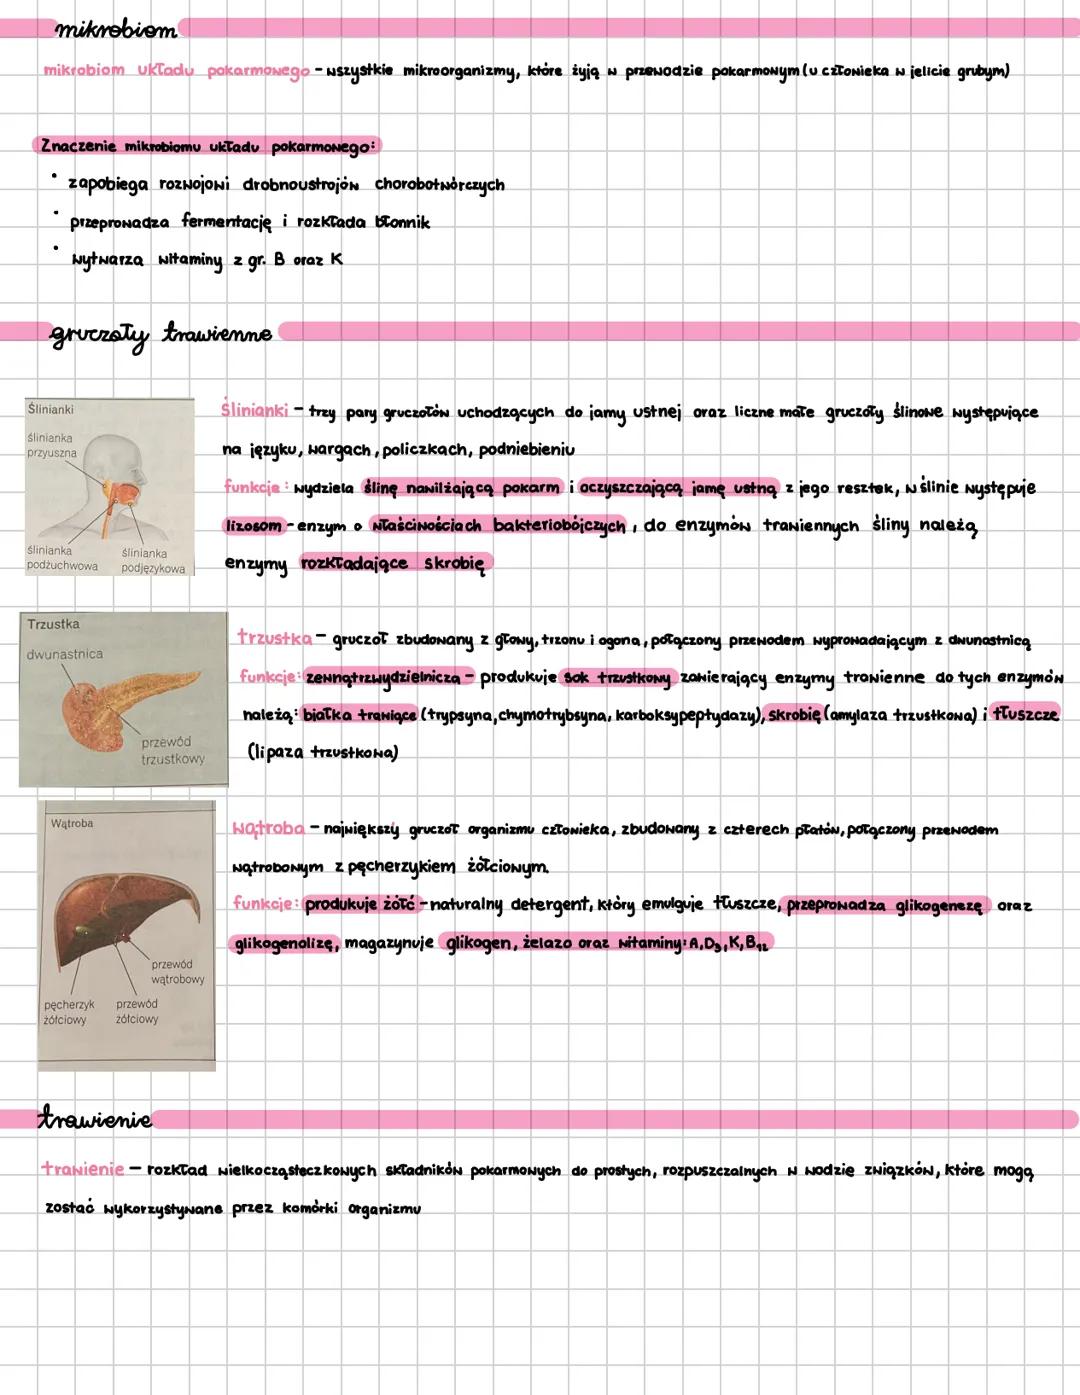 mikrobiom
mikrobiom układu pokarmowego - wszystkie mikroorganizmy, które żyją w przewodzie pokarmowym (u człowieka w jelicie grubym)
Znaczenie mikrobiomu układu pokarmowego:
• zapobiega rozwojowi drobnoustrojów chorobotwórczych
• przeprowadza fermentację i rozkłada błonnik
• wytwarza witaminy z gr. B oraz K
gruczoły trawienne
Ślinianki
ślinianka
przyuszna
ślinianka
podżuchwowa
ślinianka
podjęzykowa
ślinianki - trzy pary gruczołów uchodzących do jamy ustnej oraz liczne małe gruczoły ślinowe występujące
na języku, wargach, policzkach, podniebieniu
funkcje: wydziela ślinę nawilżającą pokarm i oczyszczającą jamę ustną z jego resztek, w ślinie występuje
lizosom - enzym o właściwościach bakteriobójczych, do enzymów trawiennych śliny należą
enzymy rozkładające skrobię
Trzustka
dwunastnica
przewód
trzustkowy
trzustka - gruczoł zbudowany z głowy, trzonu i ogona, połączony przewodem wyprowadającym z dwunastnicą
funkcje: zewnątrzwydzielnicza - produkuje sok trzustkowy zawierający enzymy trawienne do tych enzymów
należą: białka trawiące (trypsyna, chymotrybsyna, karboksypeptydazy), skrobię (amylaza trzustkowa) i tłuszcze
(lipaza trzustkowa)
Wątroba
przewód
wątrobowy
pęcherzyk
żółciowy
przewód
żółciowy
wątroba - największy gruczoł organizmu człowieka, zbudowany z czterech płatów, połączony przewodem
wątrobowym z pęcherzykiem żółciowym.
funkcje: produkuje żółć - naturalny detergent, który emulguje tłuszcze, przeprowadza glikogenezę oraz
glikogenolizę, magazynuje glikogen, żelazo oraz witaminy: A, D₃, K, B₁₂
trawienie
trawienie - rozkład wielkocząsteczkowych składników pokarmowych do prostych, rozpuszczalnych w wodzie związków, które mogą
zostać wykorzystywane przez komórki organizmu